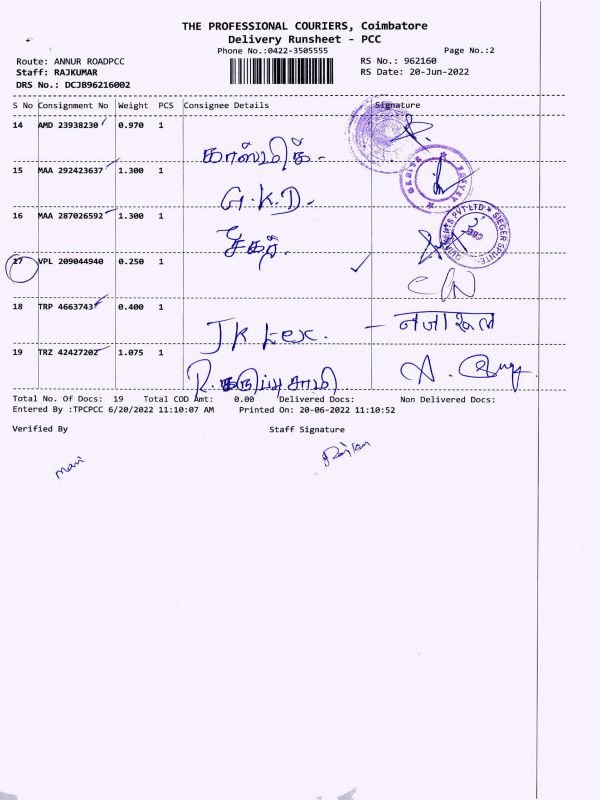 THE PROFESSIONAL COURIERS, Coimbatore
Delivery Runsheet - PCC
Phone No.:0422-3505555
Page No.:2
Route: ANNUR ROADPCC
RS No.: 962160
Staff: RAJKUMAR
RS Date: 20-Jun-2022
DRS No.: DCJB96216002
S No Consignment No Weight PCS Consignee Details Signature
14 AMD 23938230 0.970 1
15 MAA 292423637 1.300 1
G.K.D.
16 MAA 287026592 1.300 1
17 VPL 209044940 0.250 1
18 TRP 4663743 0.400 1
JK tex. -
19 TRZ 42427202 1.075 1
R. கருப்புசாமி
Total No. Of Docs: 19 Total COD Amt: 0.00 Delivered Docs: Non Delivered Docs:
Entered By :TPCPCC 6/20/2022 11:10:07 AM Printed On: 20-06-2022 11:10:52
Verified By Staff Signature
mani